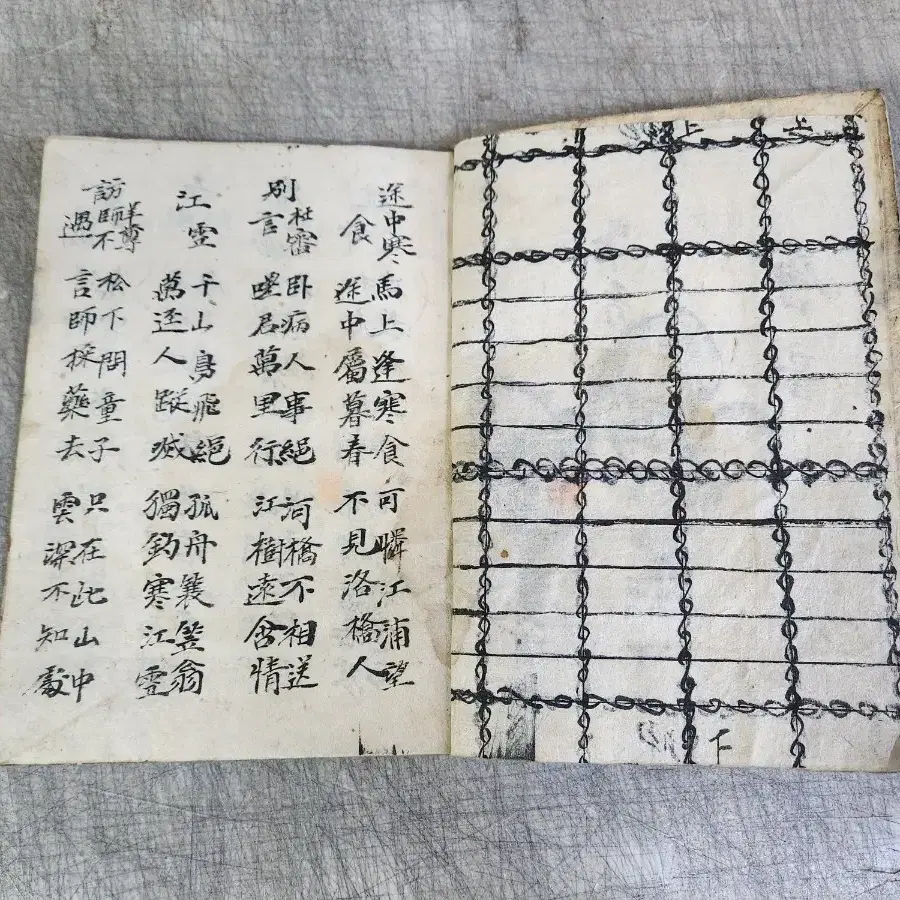 上
上
下
途中寒
食
馬上逢寒食
途中屬暮春
可憐江浦望
不見洛橋人
別杜審
言
卧病人事絕
嗟君萬里行
河橋不相送
江樹遠含情
江雪
千山鳥飛絕
萬逕人蹤滅
孤舟蓑笠翁
獨釣寒江雪
訪羊尊
師不
遇
松下問童子
言師採藥去
只在此山中
雲深不知處